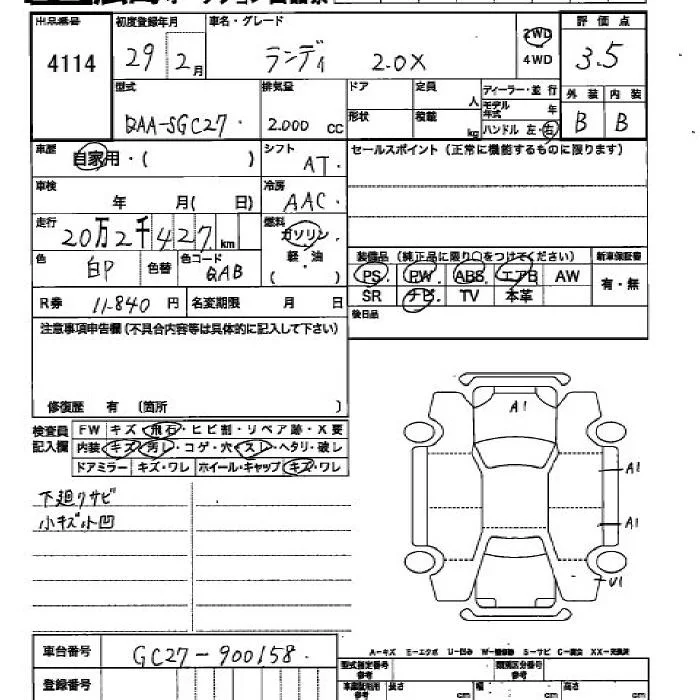 出品番号 初度登録年月 車名・グレード 評価点
4114 29 2月 ランディ 2.0X 2WD 4WD 3.5
型式 排気量 ドア 定員 人 ディーラー・並行 外装 内装
DAA-SGC27 2.000 cc 形状 積載 kg モデル年式 年 B B
ハンドル 左・右
車歴 自家用・( ) シフト AT. セールスポイント (正常に機能するものに限ります)
車検 年 月( 日) 冷房 AAC.
走行 20万2千427km 燃料 ガソリン.
色 白P 色替 色コード QAB 軽・油 ( )
装備品 (純正品に限り○をつけてください) 新車保証書
PS. PW. ABS. エアB AW 有・無
SR ナビ. TV 本革
R券 11.840 円 名変期限 月 日 後日品
注意事項申告欄 (不具合内容等は具体的に記入して下さい)
修復歴 有 (箇所 )
検査員記入欄 FW キズ・飛石・ヒビ割・リペア跡・X要
内装 キズ・汚レ・コゲ・穴・スレ・ヘタリ・破レ
ドアミラー キズ・ワレ ホイール・キャップ キズ・ワレ
下廻りサビ
小キズ小凹
A1
A1
A1
U1
車台番号 GC27-900158.
A-キズ E-エクボ U-凹み S-サビ
登録番号 型式指定番号 参考 類別区分番号 参考
長さ cm 幅 cm 高さ cm